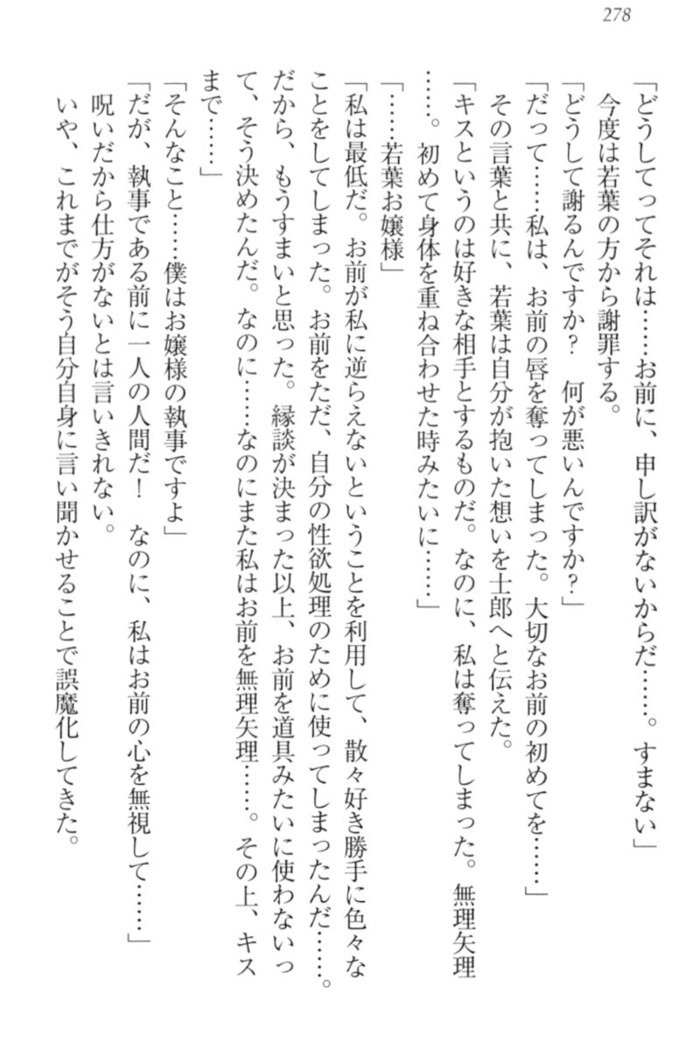 278
「どうしてってそれは……お前に、申し訳がないからだ……。すまない」
今度は若葉の方から謝罪する。
「どうして謝るんですか？　何が悪いんですか？」
「だって……私は、お前の唇を奪ってしまった。大切なお前の初めてを……」
その言葉と共に、若葉は自分が抱いた想いを士郎へと伝えた。
「キスというのは好きな相手とするものだ。なのに、私は奪ってしまった。無理矢理
……。初めて身体を重ね合わせた時みたいに……」
「……若葉お嬢様」
「私は最低だ。お前が私に逆らえないということを利用して、散々好き勝手に色々な
ことをしてしまった。お前をただ、自分の性欲処理のために使ってしまったんだ……。
だから、もうすまいと思った。縁談が決まった以上、お前を道具みたいに使わないっ
て、そう決めたんだ。なのに……なのにまた私はお前を無理矢理……。その上、キス
まで……」
「そんなこと……僕はお嬢様の執事ですよ」
「だが、執事である前に一人の人間だ！　なのに、私はお前の心を無視して……」
呪いだから仕方がないとは言いきれない。
いや、これまでがそう自分自身に言い聞かせることで誤魔化してきた。